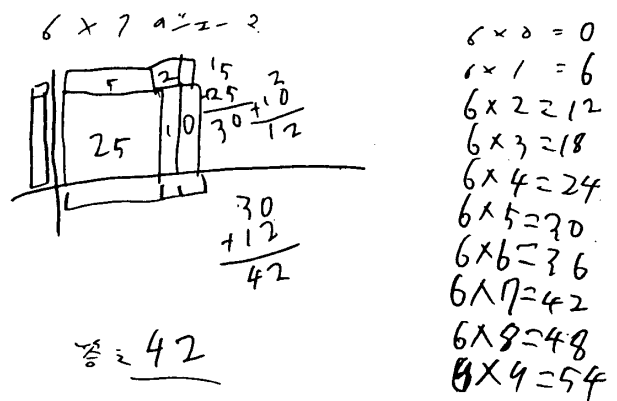 6 × 7
5 2
25 1 0
5
+25
30
2
+10
12
30
+12
42
答: 42
6 × 0 = 0
6 × 1 = 6
6 × 2 = 12
6 × 3 = 18
6 × 4 = 24
6 × 5 = 30
6 × 6 = 36
6 × 7 = 42
6 × 8 = 48
6 × 9 = 54